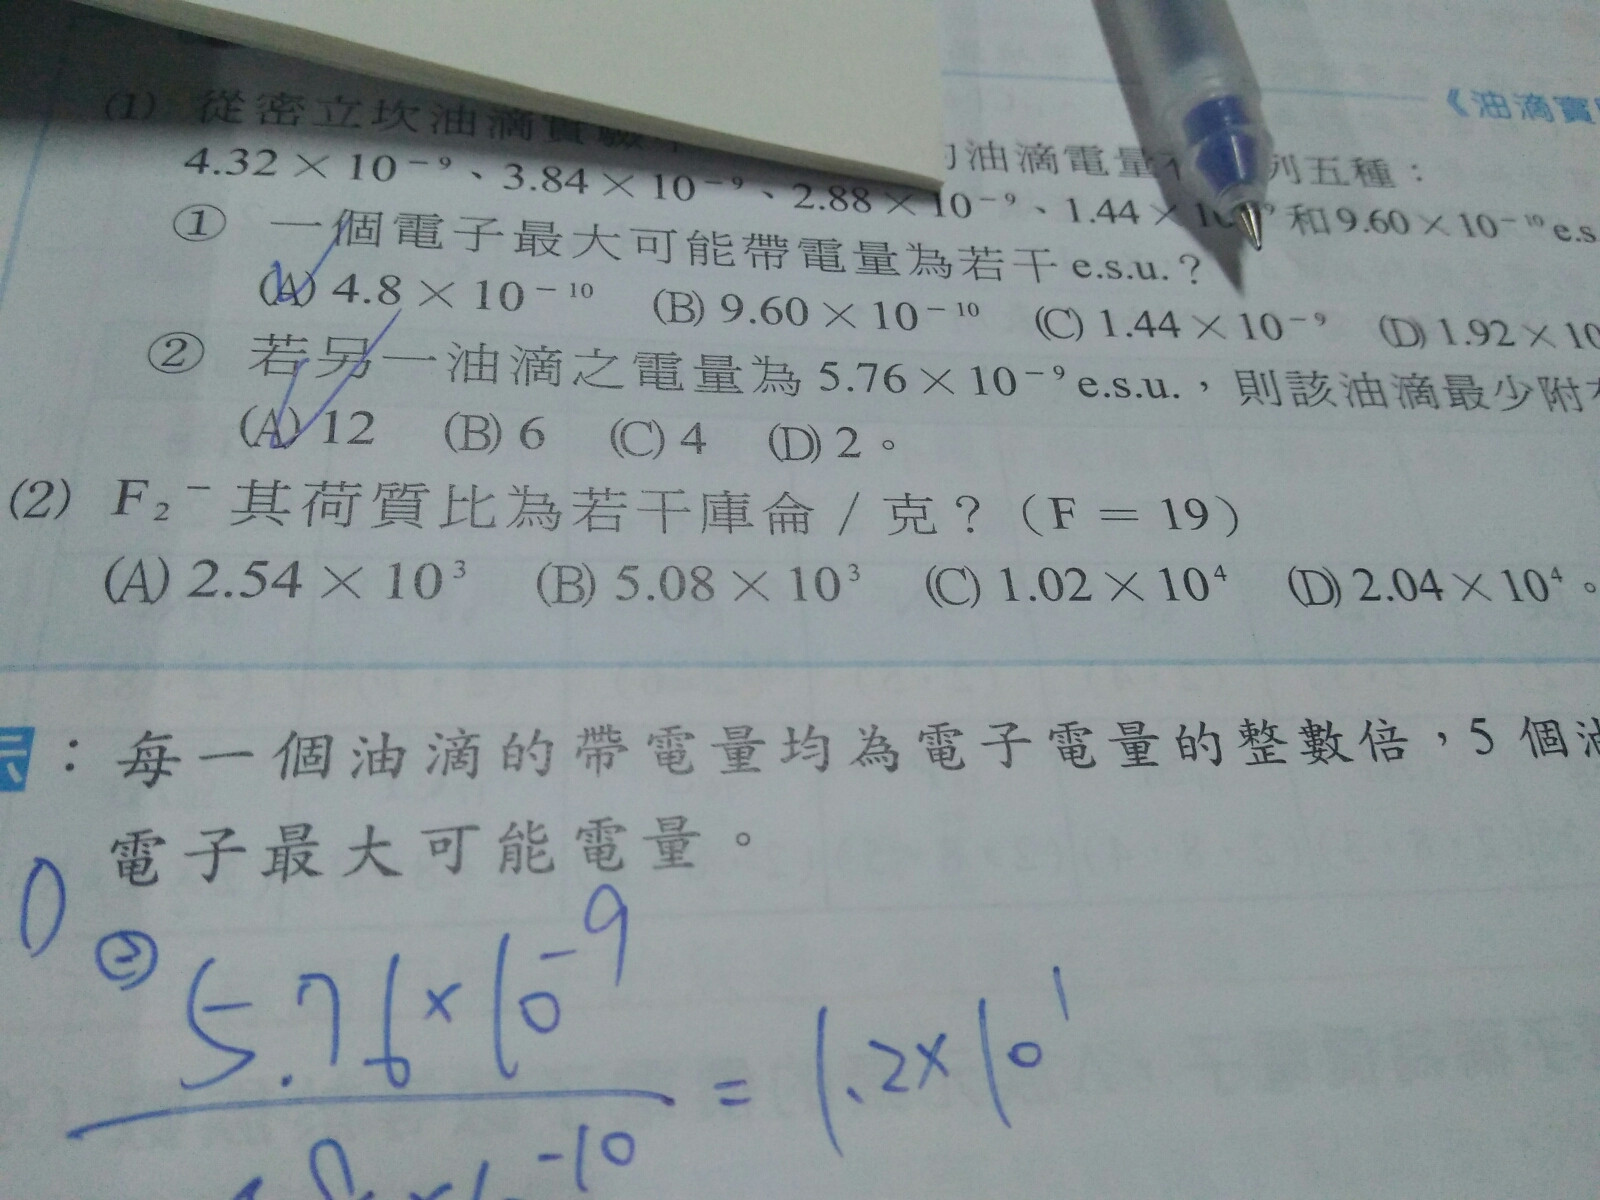 《油滴實
(1) 從密立坎油滴實驗 油滴電量 列五種：
4.32 × 10⁻⁹、3.84 × 10⁻⁹、2.88 × 10⁻⁹、1.44 × 10⁻⁹ 和 9.60 × 10⁻¹⁰ e.s
① 一個電子最大可能帶電量為若干 e.s.u.？
(A) 4.8 × 10⁻¹⁰ (B) 9.60 × 10⁻¹⁰ (C) 1.44 × 10⁻⁹ (D) 1.92 × 10
② 若另一油滴之電量為 5.76 × 10⁻⁹ e.s.u.，則該油滴最少附
(A) 12 (B) 6 (C) 4 (D) 2。
(2) F₂⁻ 其荷質比為若干庫侖／克？（F = 19）
(A) 2.54 × 10³ (B) 5.08 × 10³ (C) 1.02 × 10⁴ (D) 2.04 × 10⁴。
示：每一個油滴的帶電量均為電子電量的整數倍，5 個油
電子最大可能電量。
② 5.76×10⁻⁹
= 1.2×10¹
⁻¹⁰